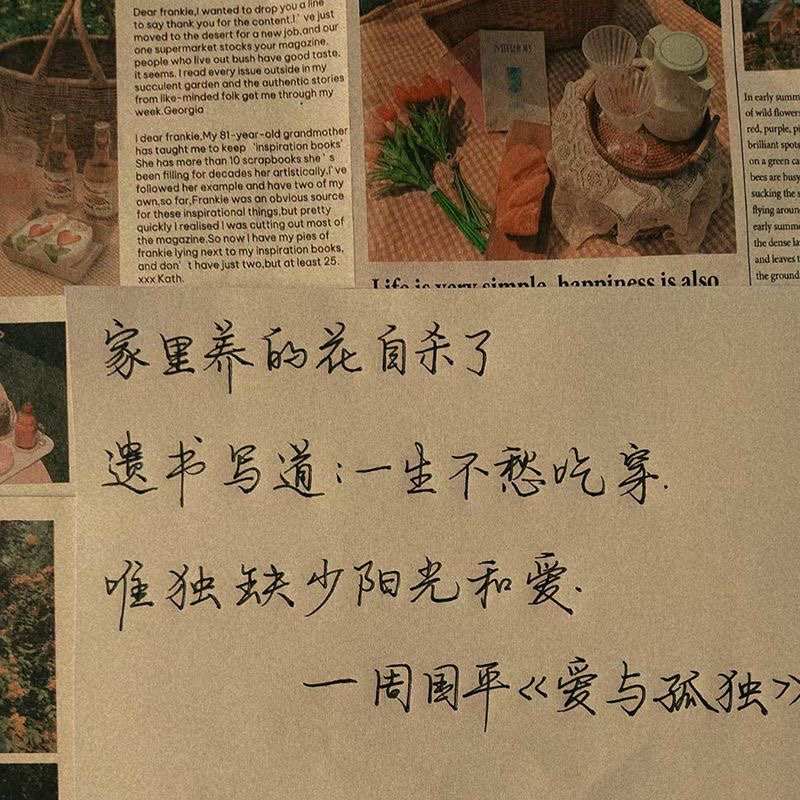 Dear frankie,I wanted to drop you a line
to say thank you for the content.I've just
moved to the desert for a new job,and our
one supermarket stocks your magazine.
people who live out bush have good taste,
it seems. I read every issue outside in my
succulent garden and the authentic stories
from like-minded folk get me through my
week.Georgia
I dear frankie.My 81-year-old grandmother
has taught me to keep 'inspiration books'
She has more than 10 scrapbooks she's
been filling for decades her artistically.I've
followed her example and have two of my
own,so far,Frankie was an obvious source
for these inspirational things,but pretty
quickly I realised I was cutting out most of
the magazine.So now I have my pies of
frankie lying next to my inspiration books,
and don't have just two,but at least 25.
xxx Kath.
Life is very simple, happiness is also
In early summ
of wild flower
red, purple, pi
brilliant spots
on a green ca
bees are busy
sucking the s
flying aroun
early summe
the dense la
and leaves t
the ground
家里养的花自杀了
遗书写道:一生不愁吃穿.
唯独缺少阳光和爱.
一周国平《爱与孤独》